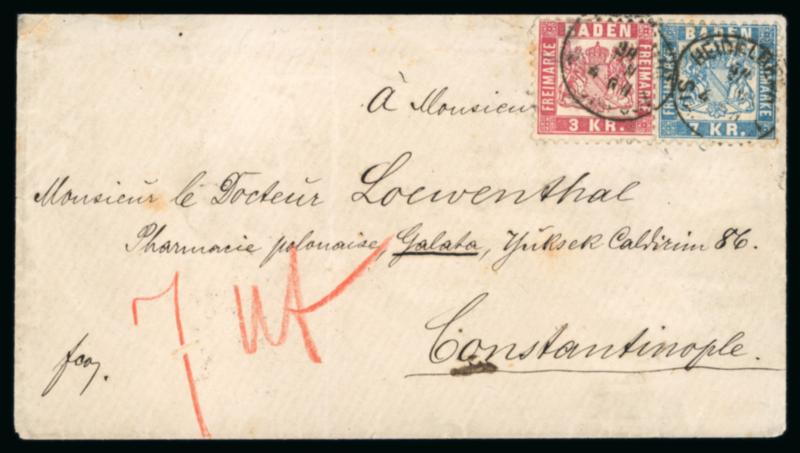 BADEN
FREIMARKE
FREIMARKE
3 KR.
BADEN
FREIMARKE
7 KR.
À Monsieur
Monsieur le Docteur Loewenthal
Pharmacie polonaise, Galata, Yüksek Caldirim 86.
Constantinople.
fco.
7